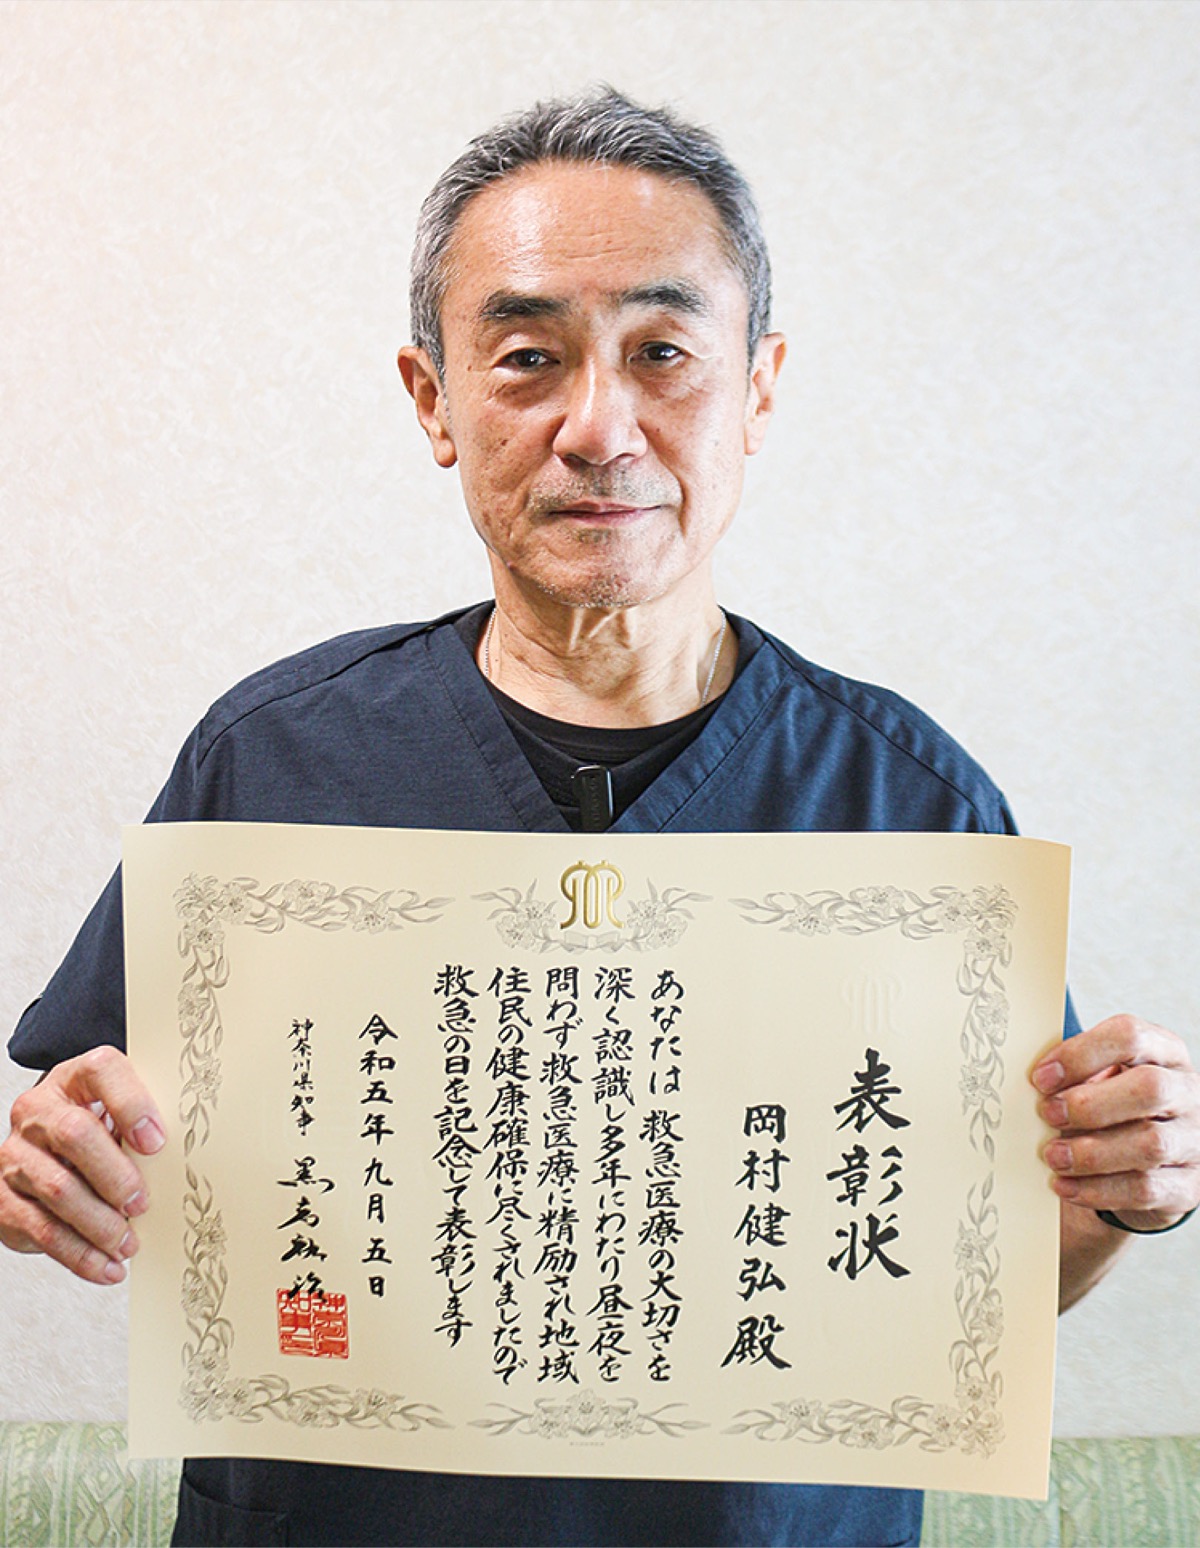 表彰状
岡村健弘殿
あなたは救急医療の大切さを
深く認識し多年にわたり昼夜を
問わず救急医療に精励され地域
住民の健康確保に尽くされましたので
救急の日を記念して表彰します
令和五年九月五日
神奈川県知事 黒岩祐治